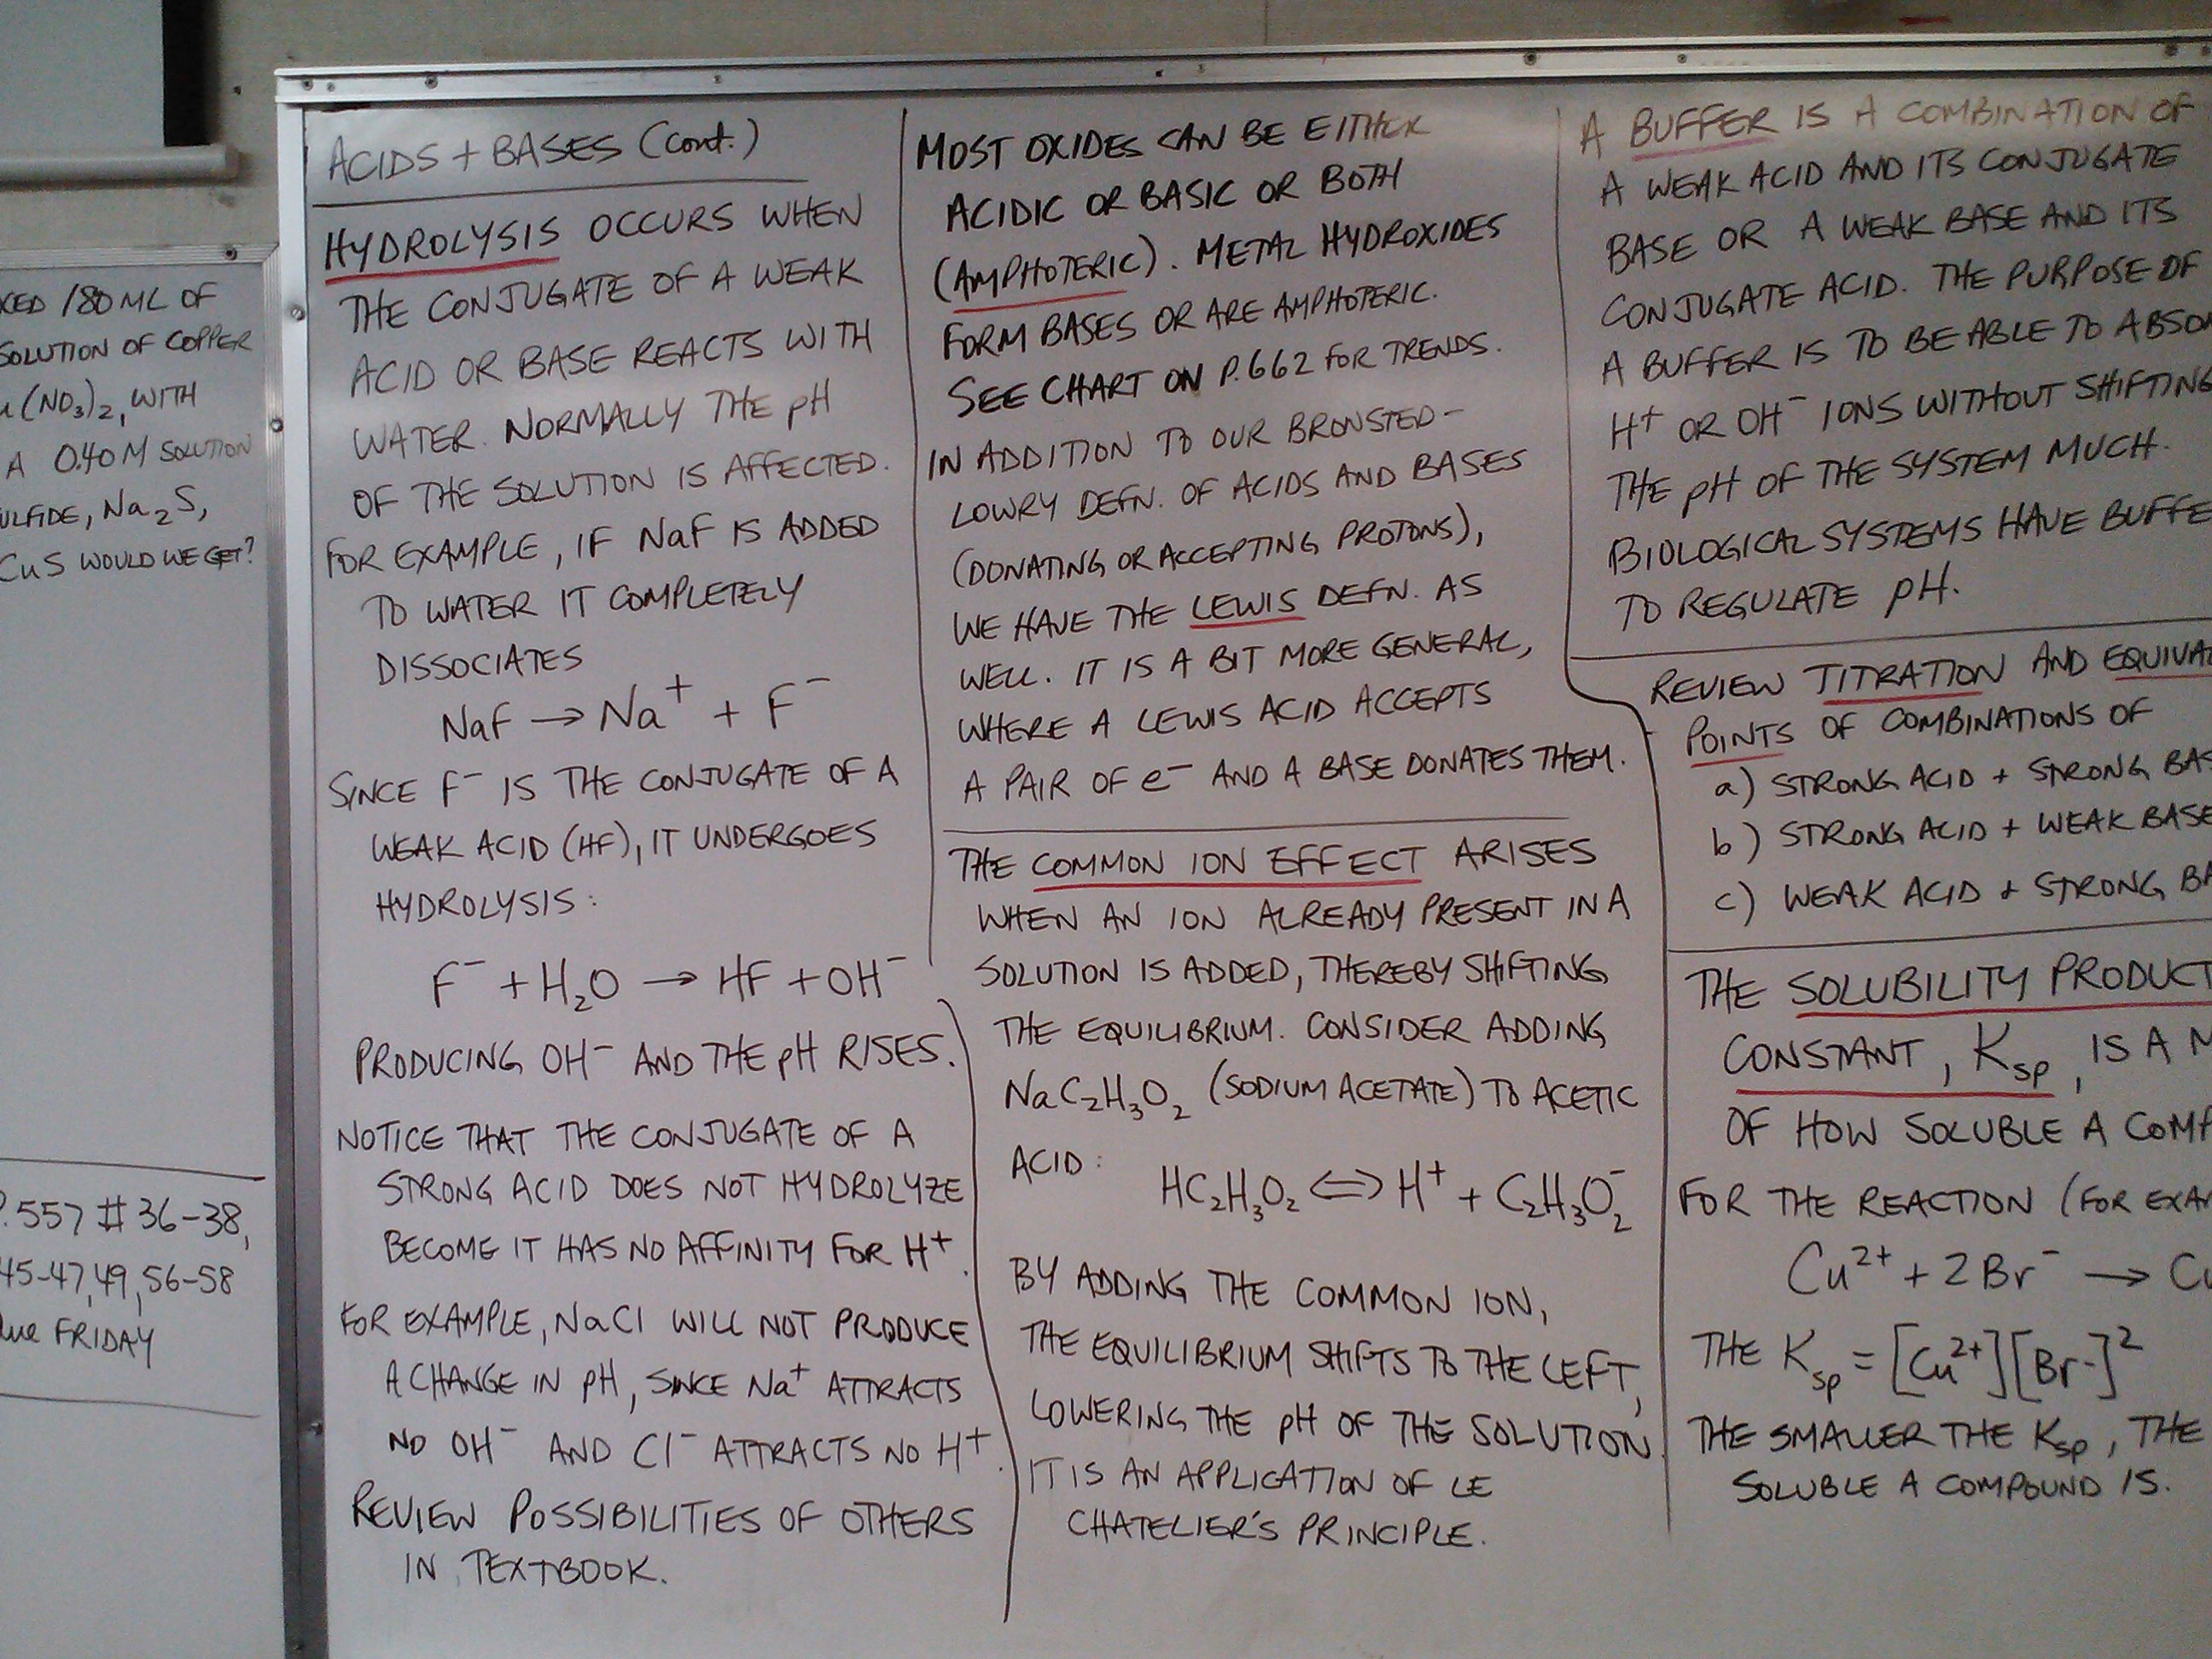 180 ML OF
SOLUTION OF COPPER
(NO₃)₂, WITH
A 0.40 M SOLUTION
Na₂S,
CuS WOULD WE GET?
P.557 # 36-38,
45-47, 49, 56-58
FRIDAY
ACIDS + BASES (cont.)
HYDROLYSIS OCCURS WHEN
THE CONJUGATE OF A WEAK
ACID OR BASE REACTS WITH
WATER. NORMALLY THE pH
OF THE SOLUTION IS AFFECTED.
FOR EXAMPLE, IF NaF IS ADDED
TO WATER IT COMPLETELY
DISSOCIATES
NaF → Na⁺ + F⁻
SINCE F⁻ IS THE CONJUGATE OF A
WEAK ACID (HF), IT UNDERGOES
HYDROLYSIS:
F⁻ + H₂O → HF + OH⁻
PRODUCING OH⁻ AND THE pH RISES.
NOTICE THAT THE CONJUGATE OF A
STRONG ACID DOES NOT HYDROLYZE
BECOME IT HAS NO AFFINITY FOR H⁺.
FOR EXAMPLE, NaCl WILL NOT PRODUCE
A CHANGE IN pH, SINCE Na⁺ ATTRACTS
NO OH⁻ AND Cl⁻ ATTRACTS NO H⁺.
REVIEW POSSIBILITIES OF OTHERS
IN TEXTBOOK.
MOST OXIDES CAN BE EITHER
ACIDIC OR BASIC OR BOTH
(AMPHOTERIC). METAL HYDROXIDES
FORM BASES OR ARE AMPHOTERIC.
SEE CHART ON P.662 FOR TRENDS.
IN ADDITION TO OUR BRONSTED-
LOWRY DEFN. OF ACIDS AND BASES
(DONATING OR ACCEPTING PROTONS),
WE HAVE THE LEWIS DEFN. AS
WELL. IT IS A BIT MORE GENERAL,
WHERE A LEWIS ACID ACCEPTS
A PAIR OF e⁻ AND A BASE DONATES THEM.
THE COMMON ION EFFECT ARISES
WHEN AN ION ALREADY PRESENT IN A
SOLUTION IS ADDED, THEREBY SHIFTING
THE EQUILIBRIUM. CONSIDER ADDING
NaC₂H₃O₂ (SODIUM ACETATE) TO ACETIC
ACID:
HC₂H₃O₂ ⇔ H⁺ + C₂H₃O₂⁻
BY ADDING THE COMMON ION,
THE EQUILIBRIUM SHIFTS TO THE LEFT,
LOWERING THE pH OF THE SOLUTION.
IT IS AN APPLICATION OF LE
CHATELIER'S PRINCIPLE.
A BUFFER IS A COMBINATION OF
A WEAK ACID AND ITS CONJUGATE
BASE OR A WEAK BASE AND ITS
CONJUGATE ACID. THE PURPOSE OF
A BUFFER IS TO BE ABLE TO
H⁺ OR OH⁻ IONS WITHOUT SHIFTING
THE pH OF THE SYSTEM MUCH.
BIOLOGICAL SYSTEMS HAVE BUFFE
TO REGULATE pH.
REVIEW TITRATION AND EQUIVA
POINTS OF COMBINATIONS OF
a) STRONG ACID + STRONG BAS
b) STRONG ACID + WEAK BASE
c) WEAK ACID + STRONG BA
THE SOLUBILITY PRODUCT
CONSTANT, Ksp, IS A M
OF HOW SOLUBLE A COMP
FOR THE REACTION (FOR EXA
Cu²⁺ + 2Br⁻ → Cu
THE Ksp = [Cu²⁺][Br⁻]²
THE SMALLER THE Ksp, THE
SOLUBLE A COMPOUND IS.